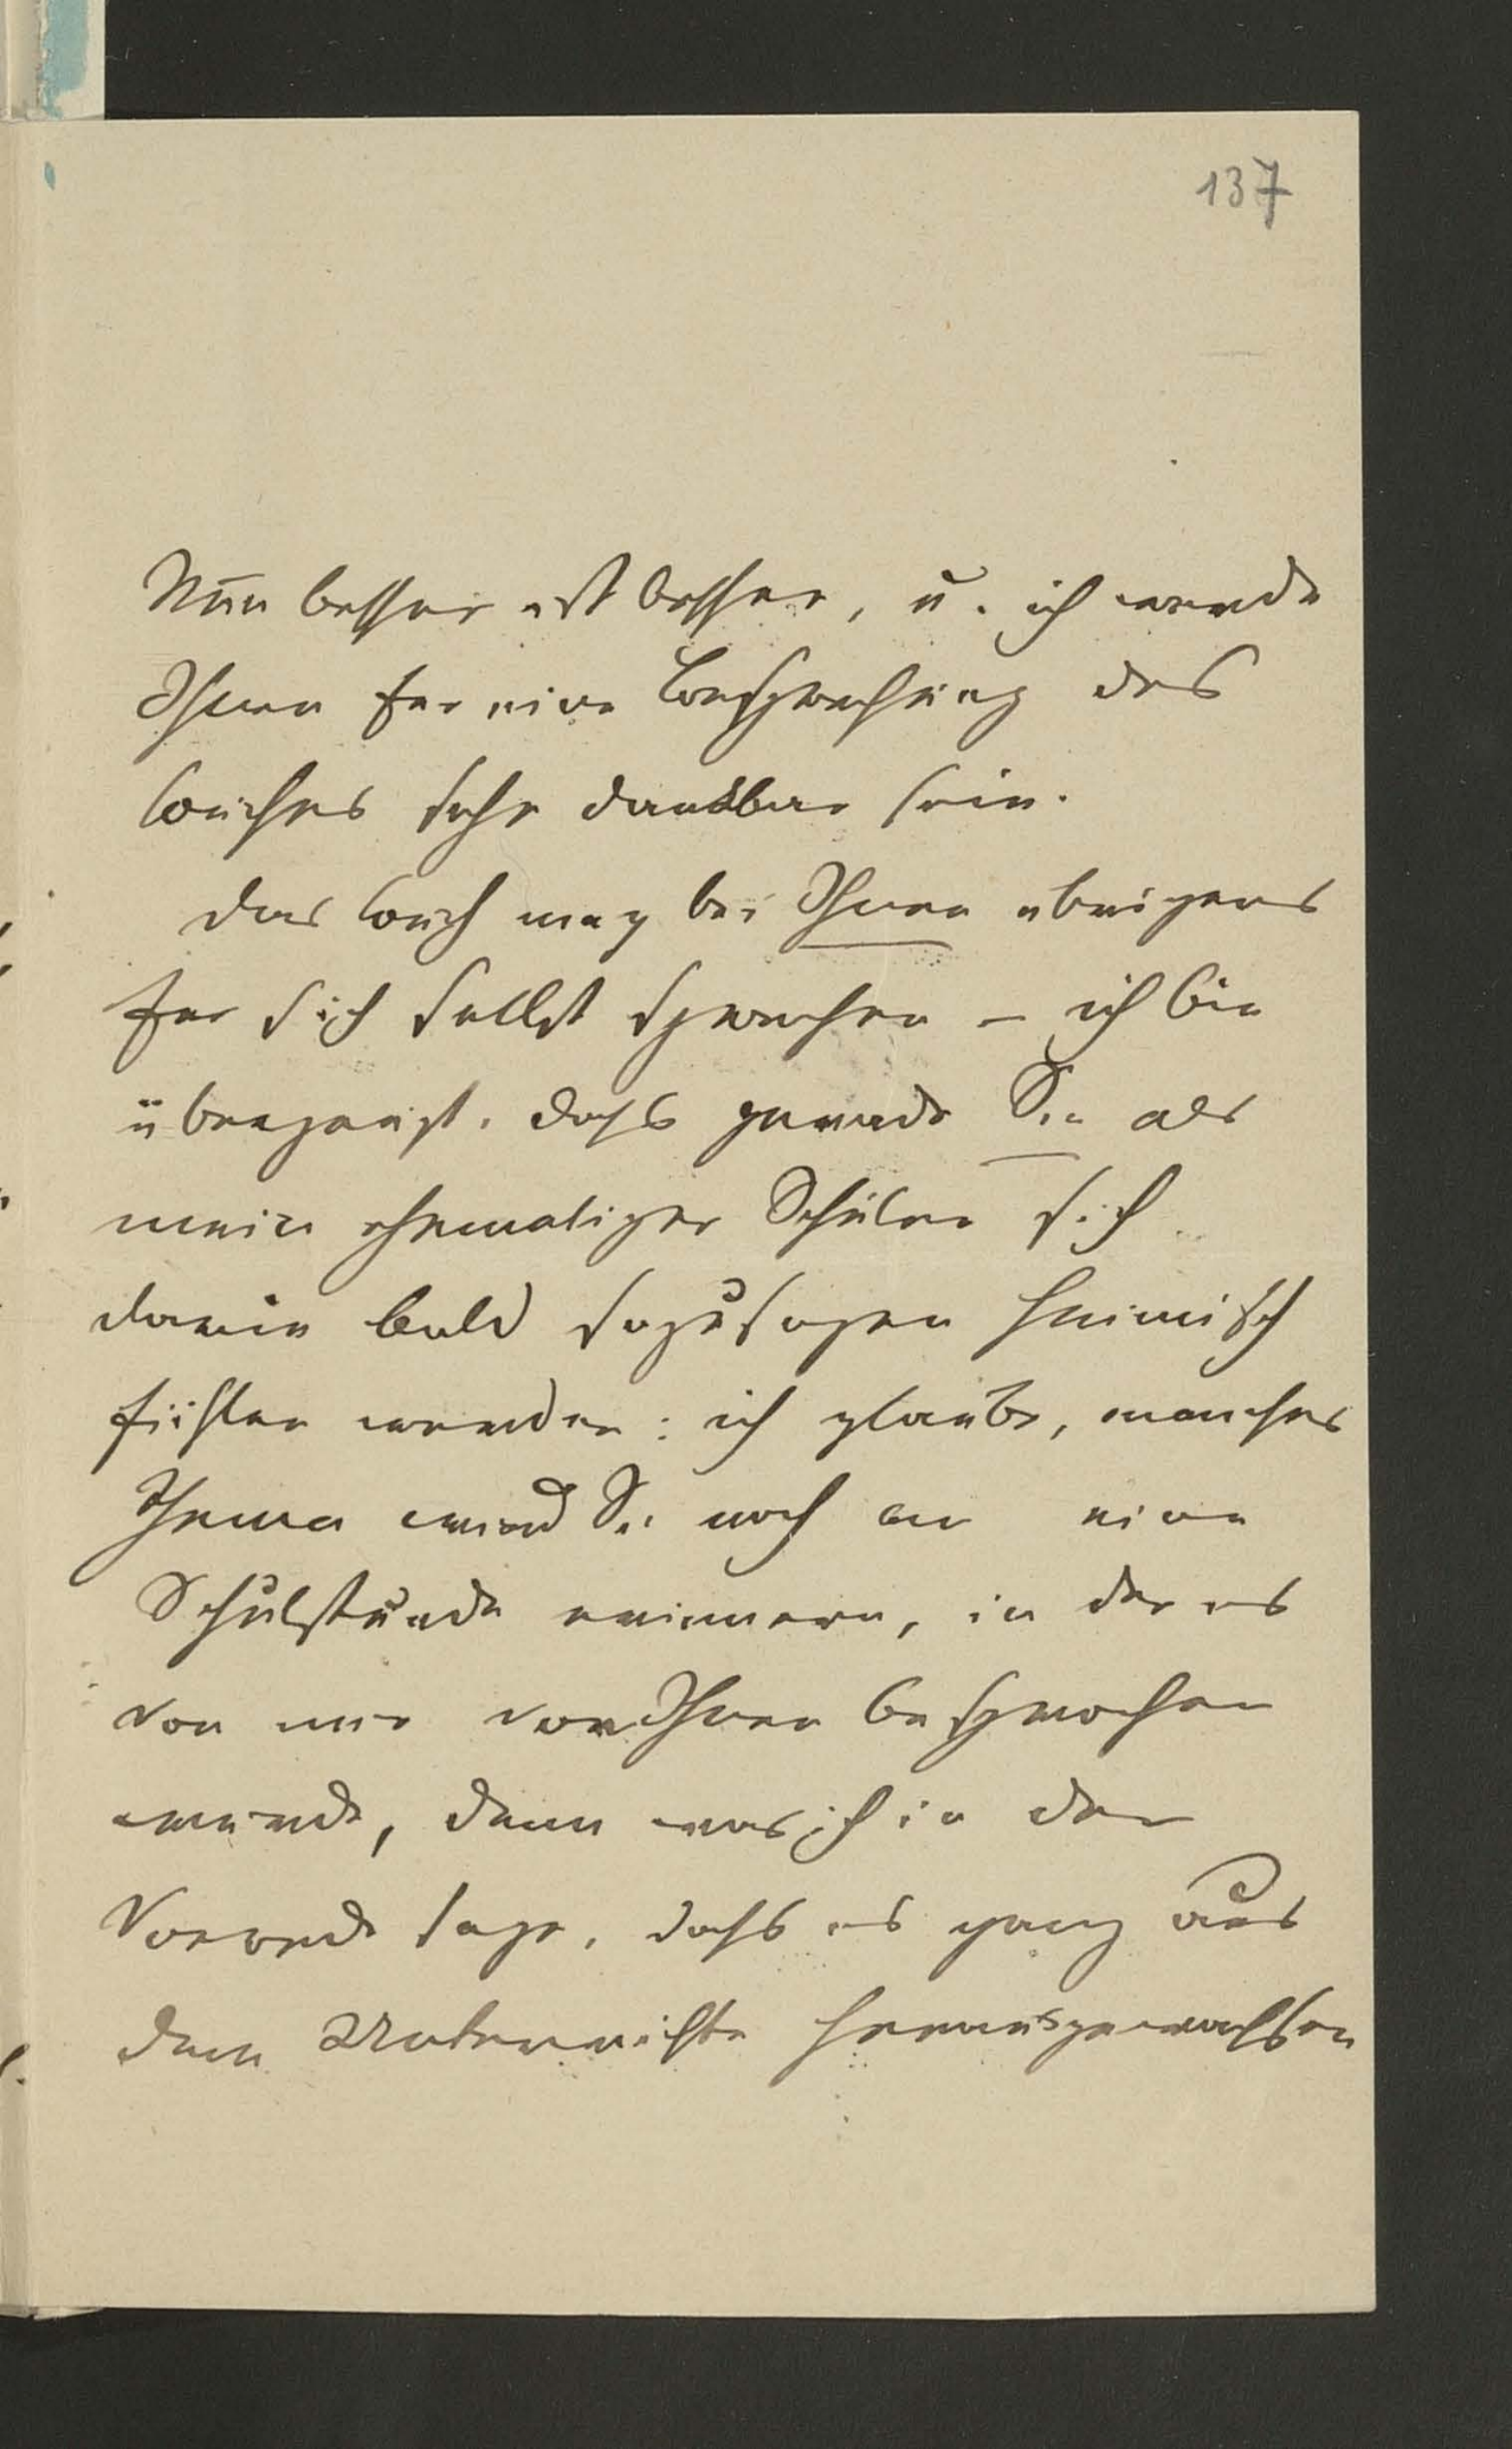 137
Nun besser ist besser, u. ich werde
Ihnen für eine Besprechung des
Buches sehr dankbar sein.
Das Buch mag bei Ihnen übrigens
für sich selbst sprechen – ich bin
überzeugt, dass gerade Sie als
mein ehemaliger Schüler sich
darin bald sozusagen heimisch
fühlen werden: ich glaube, manches
Thema wird Sie noch an eine
Schulstunde erinnern, in der es
von mir vor Ihnen besprochen
wurde, denn was ich in der
Vorrede sage, dass es ganz aus
dem Unterrichte herausgewachsen